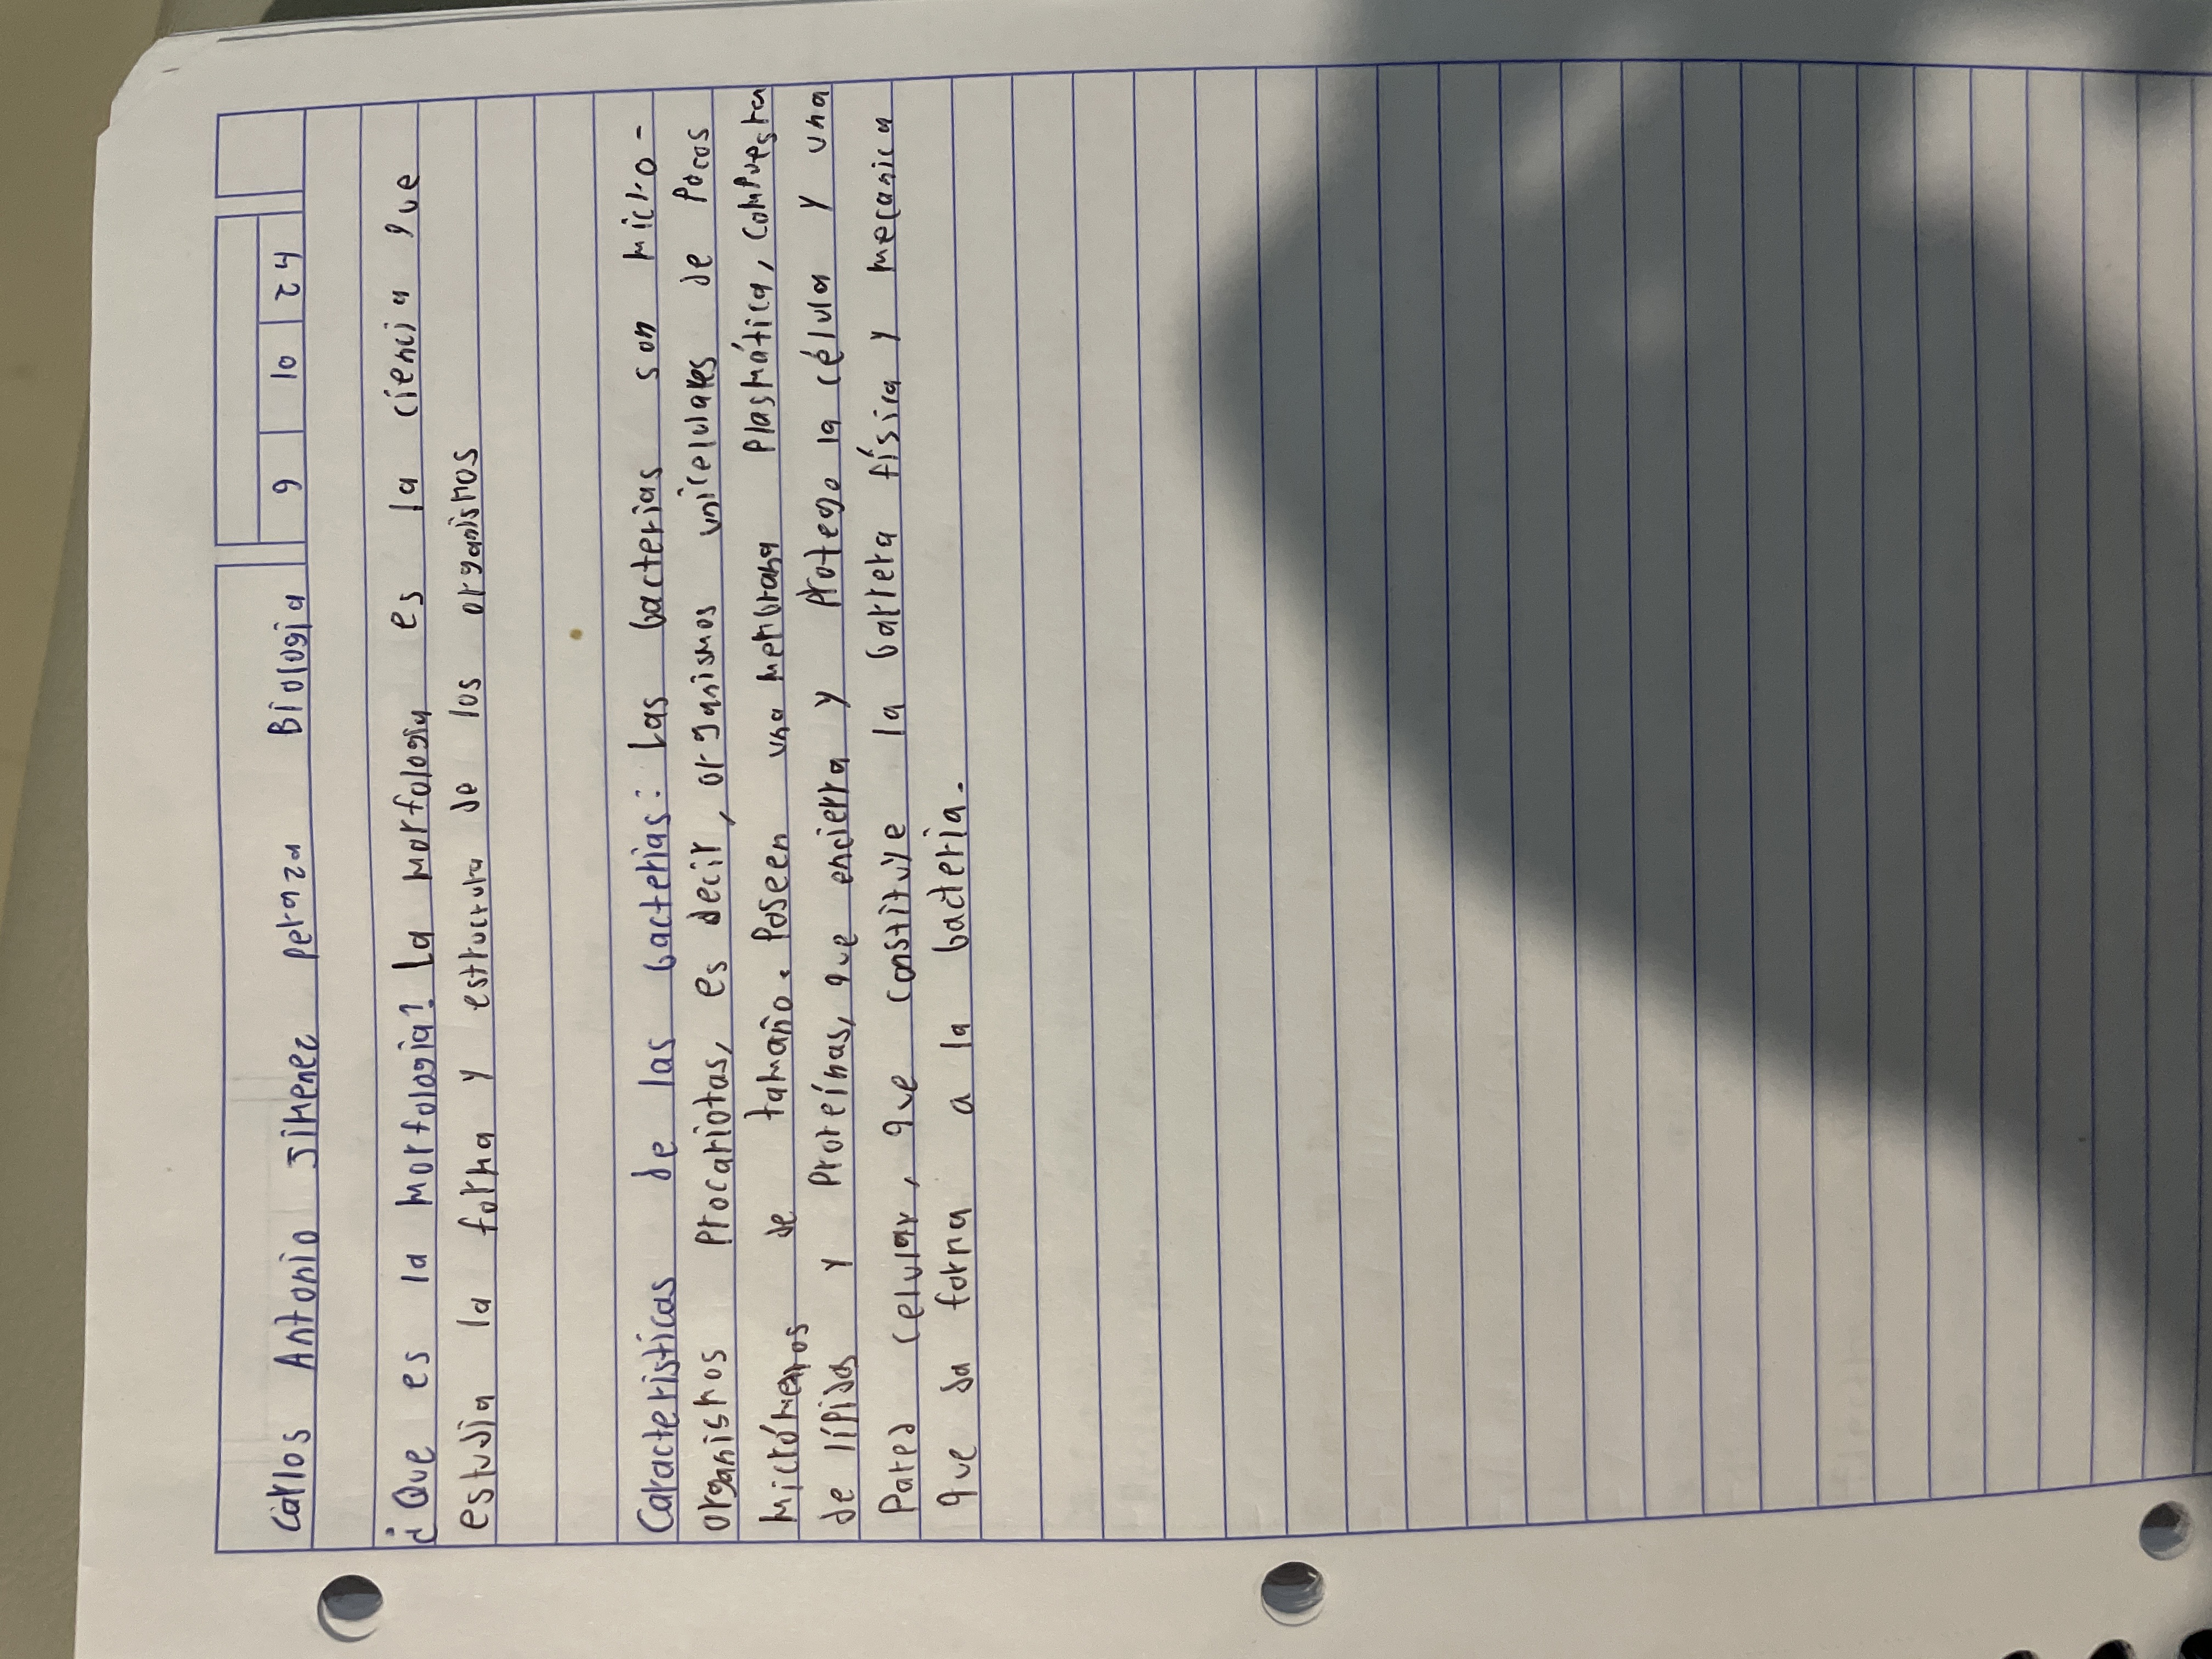 Carlos Antonio Jimenez Peraza Biologia 9 10 24
¿Que es la morfologia? La morfologia es la ciencia que
estudia la forma y estructura de los organismos
Caracteristicas de las bacterias: Las bacterias son micro-
organismos procariotas, es decir, organismos unicelulares de pocos
micrómetros de tamaño. Poseen una membrana plasmática, compuesta
de lípidos y proteínas, que encierra y protege la célula y una
pared celular, que constituye la barrera física y mecanica
que da forma a la bacteria.